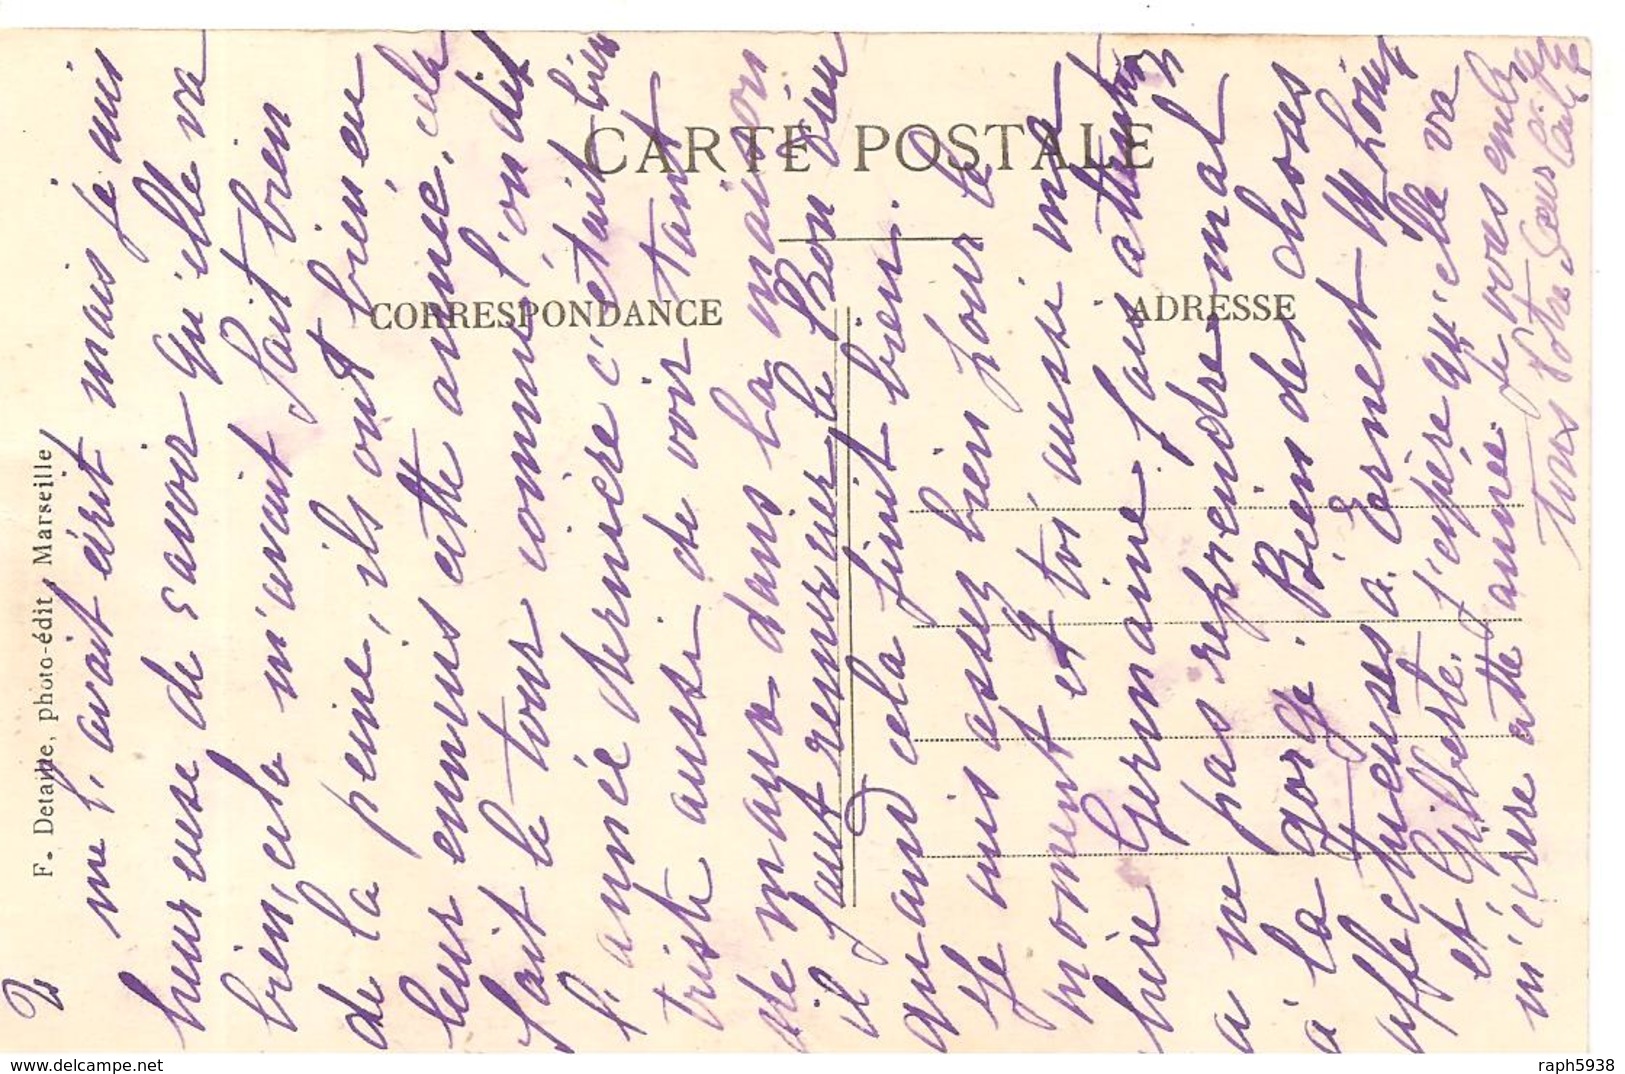 CARTE POSTALE
CORRESPONDANCE
ADRESSE
F. Detaille, photo-édit, Marseille
2
me l'avait écrit mais je suis
heureuse de savoir qu'elle va
bien, cela m'avait fait bien
de la peine, ils ont bien eu
leur ennuis cette année, cela
fait le tour comme l'on dit
l'année dernière c'était bien
triste aussi de voir tant
de maux dans la maison
il faut remercier le Bon Dieu
quand cela finit bien.
Je suis assez bien pour le
moment et toi aussi ma
chère Germaine fais attention
a ne pas reprendre mal
à la gorge. Bien des choses
affectueuses à Ernest M Louise
et Gilberte, j'espère qu'elle va
m'écrire cette année. Je vous embrasse
tous Votre Sœur